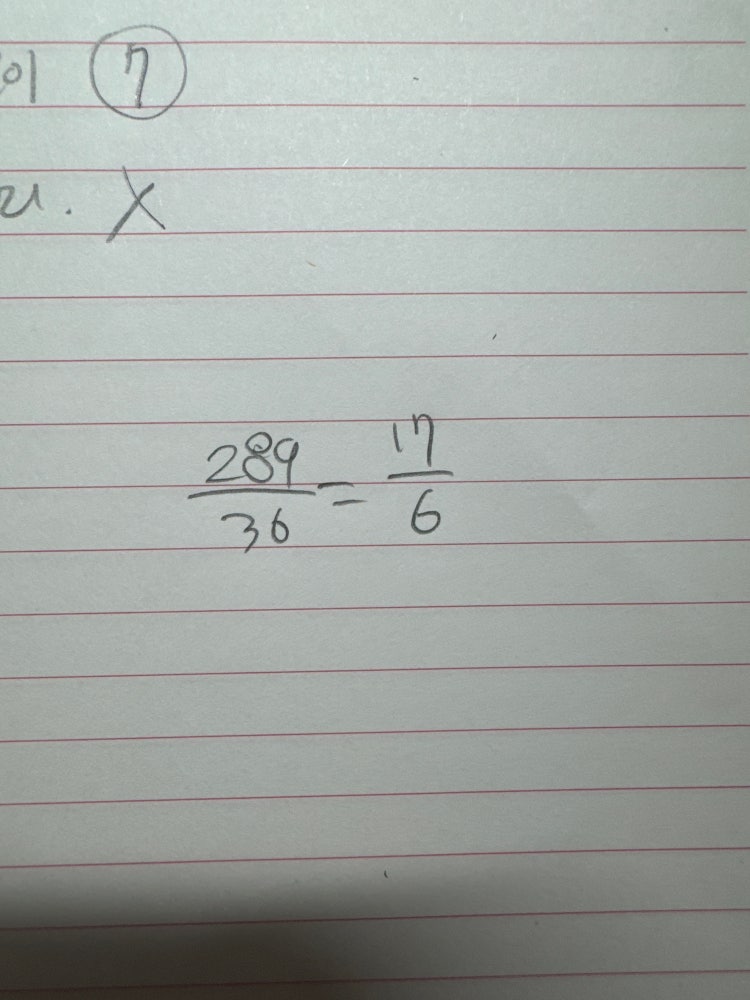 이 ⑦
고. X
289/36 = 17/6